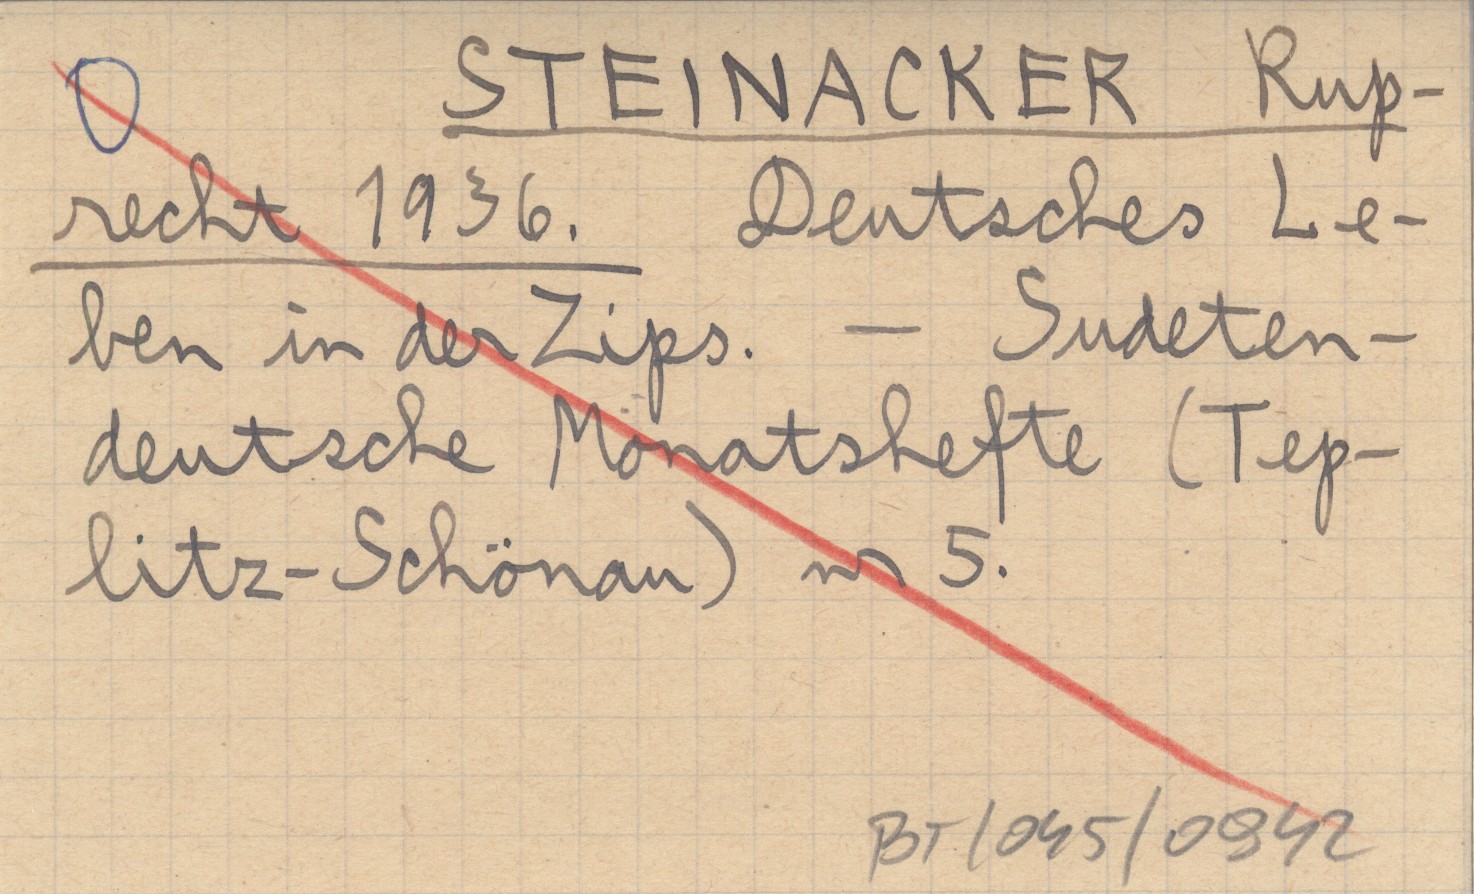 STEINACKER Rup-
recht 1936. Deutsches Le-
ben in der Zips. — Sudeten-
deutsche Monatshefte (Tep-
litz-Schönau) nr 5.
BT/045/0942